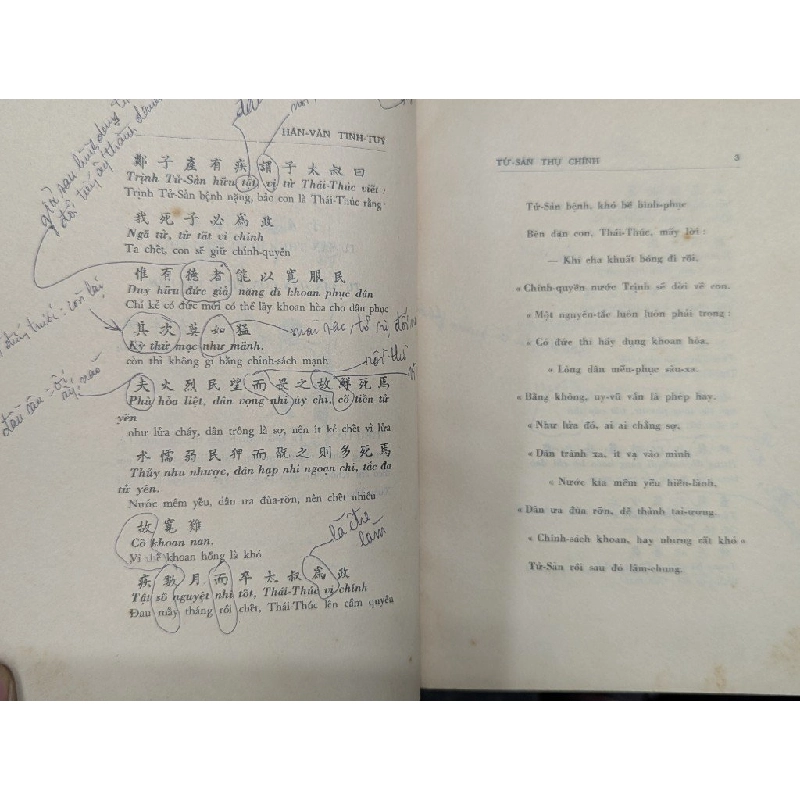 HÁN-VĂN TINH-TUÝ
鄭子產有疾謂子太叔曰
Trịnh Tử-Sản hữu tất vị tử Thái-Thúc viết :
Trịnh Tử-Sản bệnh nặng, bảo con là Thái-Thúc rằng
我死子必為政
Ngã tử, tử tất vi chính
Ta chết, con sẽ giữ chính-quyền
惟有德者能以寬服民
Duy hữu đức giả năng dĩ khoan phục dân
Chỉ kẻ có đức mới có thể lấy khoan hòa cho dân phục
其次莫如猛
Kỳ thứ mạc như mãnh.
còn thì không gì bằng chính-sách mạnh
夫火烈民望而畏之故鮮死焉
Phù hỏa liệt, dân vọng nhi úy chi, cố tiễn tử
yên
như lửa cháy, dân trông là sợ, nên ít kẻ chết vì lửa
水懦弱民狎而翫之則多死焉
Thủy nhu nhược, dân hạp nhi ngoạn chi, tắc đa
tử yên.
Nước mềm yếu, dân ưa đùa-rỡn, nên chết nhiều
故寬難
Cố khoan nan,
Vì thế khoan hồng là khó
疾數月而卒太叔為政
Tật sổ nguyệt nhi tốt, Thái-Thúc vi chính
Đau mấy tháng rồi chết, Thái Thúc lên cầm quyền
giả sau
còn lại
là thế
làm
TỬ-SẢN THỤ CHÍNH 3
Tử-Sản bệnh, khó bề bình-phục
Bên dân con, Thái-Thúc, mấy lời :
— Khi cha khuất bóng đi rồi,
« Chính-quyền nước Trịnh sẽ dời về con.
« Một nguyên-tắc luôn luôn phải trọng :
« Có đức thì hãy dụng khoan hòa,
« Lòng dân mến-phục sâu-xa.
« Bằng không, uy-vũ vẫn là phép hay.
« Như lửa đỏ, ai ai chẳng sợ,
« Dân tránh xa, ít vạ vào mình
« Nước kia mềm yếu hiền-lành,
« Dân ưa đùa rỡn, dễ thành tai-ương.
« Chính-sách khoan, hay nhưng rất khó »
Tử-Sản rồi sau đó lâm-chung.